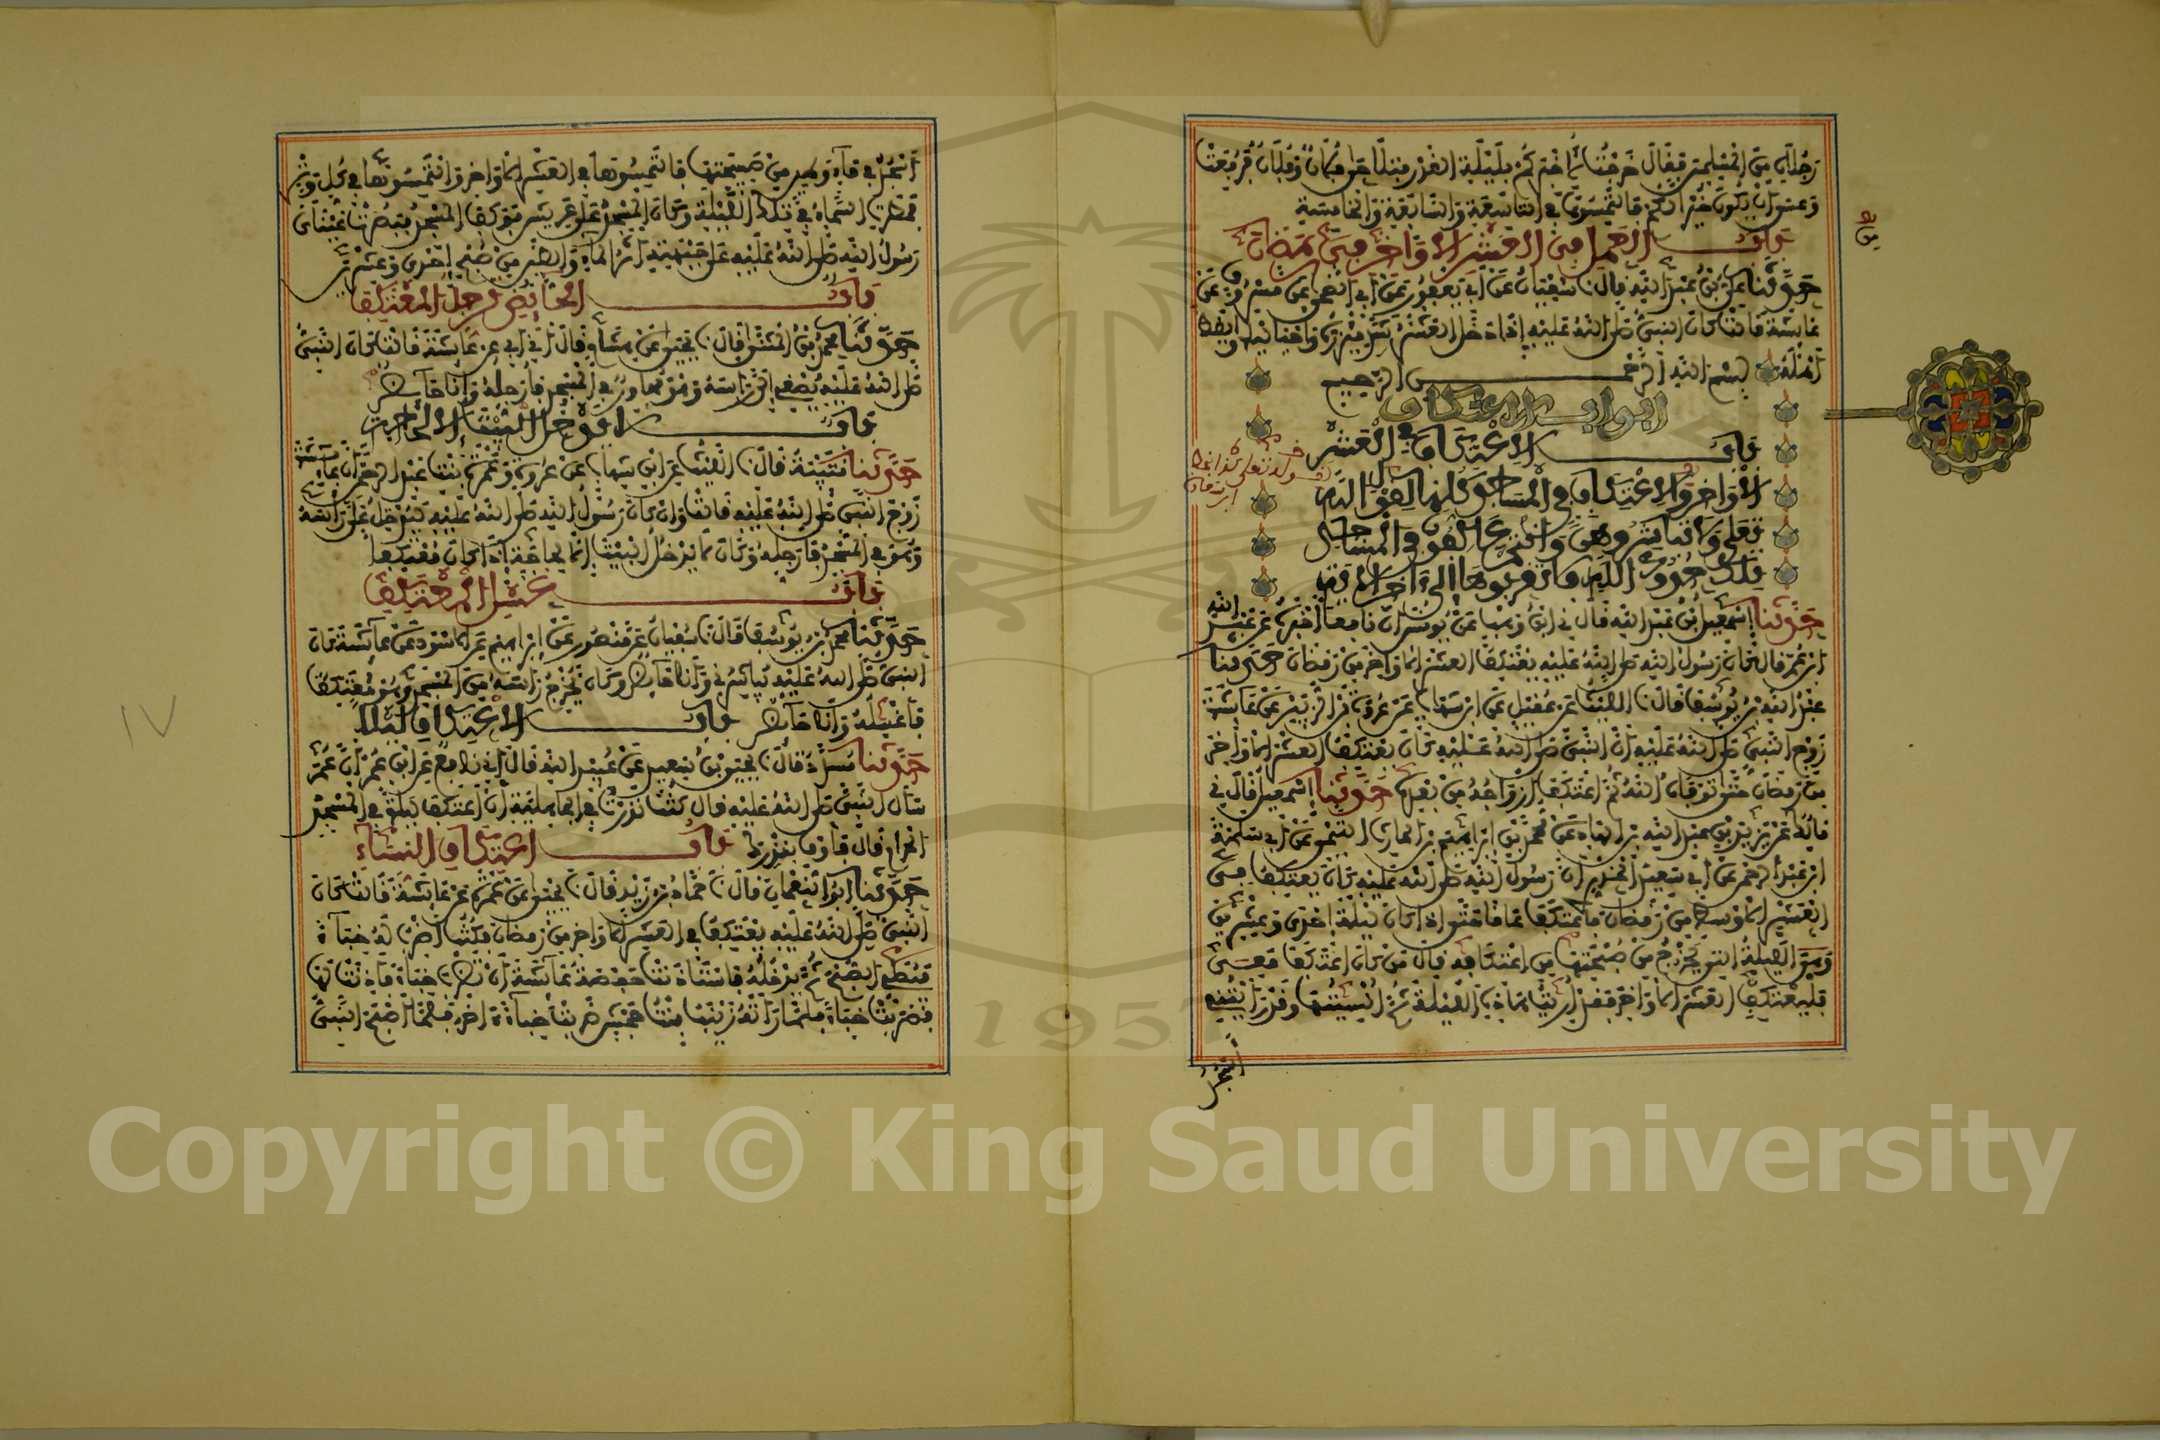 رجلان من المسلمين فقال خرجت لأخبركم بليلة القدر فتلاحى فلان وفلان فرفعت
وعسى أن يكون خيرا لكم فالتمسوها في التاسعة والسابعة والخامسة
باب العمل في العشر الأواخر من رمضان
حدثنا علي بن عبد الله قال نا سفيان عن أبي يعفور عن أبي الضحى عن مسروق عن
عائشة قالت كان النبي صلى الله عليه إذا دخل العشر شد ميزره وأحيا ليله وأيقظ
أهله بسم الله الرحمن الرحيم
أبواب الاعتكاف
باب الاعتكاف في العشر
الأواخر والاعتكاف في المساجد كلها لقول الله
تعلى ولا تباشروهن وأنتم عاكفون في المساجد
تلك حدود الله فلا تقربوها إلى آخر الآية
حدثنا إسمعيل بن عبد الله قال ني ابن وهب عن يونس أن نافعا أخبره عن عبد الله
ابن عمر قال كان رسول الله صلى الله عليه يعتكف العشر الأواخر من رمضان حدثنا
عبد الله بن يوسف قال نا الليث عن عقيل عن ابن شهاب عن عروة بن الزبير عن عائشة
زوج النبي صلى الله عليه أن النبي صلى الله عليه كان يعتكف العشر الأواخر
من رمضان حتى توفاه الله ثم اعتكف أزواجه من بعده حدثنا إسمعيل قال ني
مالك عن يزيد بن عبد الله بن الهاد عن محمد بن إبراهيم بن الحارث التيمي عن أبي سلمة
ابن عبد الرحمن عن أبي سعيد الخدري أن رسول الله صلى الله عليه كان يعتكف في
العشر الأوسط من رمضان فاعتكف عاما حتى إذا كان ليلة إحدى وعشرين
وهي الليلة التي يخرج من صبيحتها من اعتكافه قال من كان اعتكف معي
فليعتكف العشر الأواخر فقد أريت هذه الليلة ثم أنسيتها وقد رأيتني
أسجد
أسجد في ماء وطين من صبيحتها فالتمسوها في العشر الأواخر والتمسوها في كل وتر
فمطرت السماء في تلك الليلة وكان المسجد على عريش فوكف المسجد فبصرت عيناي
رسول الله صلى الله عليه على جبهته أثر الماء والطين من صبح إحدى وعشرين
باب الحائض ترجل المعتكف
حدثنا محمد بن المثنى قال نا يحيى عن هشام قال ني أبي عن عائشة قالت كان النبي
صلى الله عليه يصغي إلي رأسه وهو مجاور في المسجد فأرجله وأنا حائض
باب لا يدخل البيت إلا لحاجة
حدثنا قتيبة قال نا الليث عن ابن شهاب عن عروة وعمرة بنت عبد الرحمن أن عائشة
زوج النبي صلى الله عليه قالت وإن كان رسول الله صلى الله عليه ليدخل علي رأسه
وهو في المسجد فأرجله وكان لا يدخل البيت إلا لحاجة إذا كان معتكفا
باب غسل المعتكف
حدثنا محمد بن يوسف قال نا سفيان عن منصور عن إبراهيم عن الأسود عن عائشة كان
النبي صلى الله عليه يباشرني وأنا حائض وكان يخرج رأسه من المسجد وهو معتكف
فأغسله وأنا حائض باب الاعتكاف ليلا
حدثنا مسدد قال نا يحيى بن سعيد عن عبيد الله قال أني نافع عن ابن عمر أن عمر
سأل النبي صلى الله عليه قال كنت نذرت في الجاهلية أن أعتكف ليلة في المسجد
الحرام قال فأوف بنذرك باب اعتكاف النساء
حدثنا أبو النعمان قال نا حماد بن زيد قال نا يحيى عن عمرة عن عائشة قالت كان
النبي صلى الله عليه يعتكف في العشر الأواخر من رمضان فكنت أضرب له خباء
فيصلي الصبح ثم يدخله فاستأذنت حفصة عائشة أن تضرب خباء فأذنت لها
فضربت خباء فلما رأته زينب بنت جحش ضربت خباء آخر فلما أصبح النبي
Copyright © King Saud University
1957